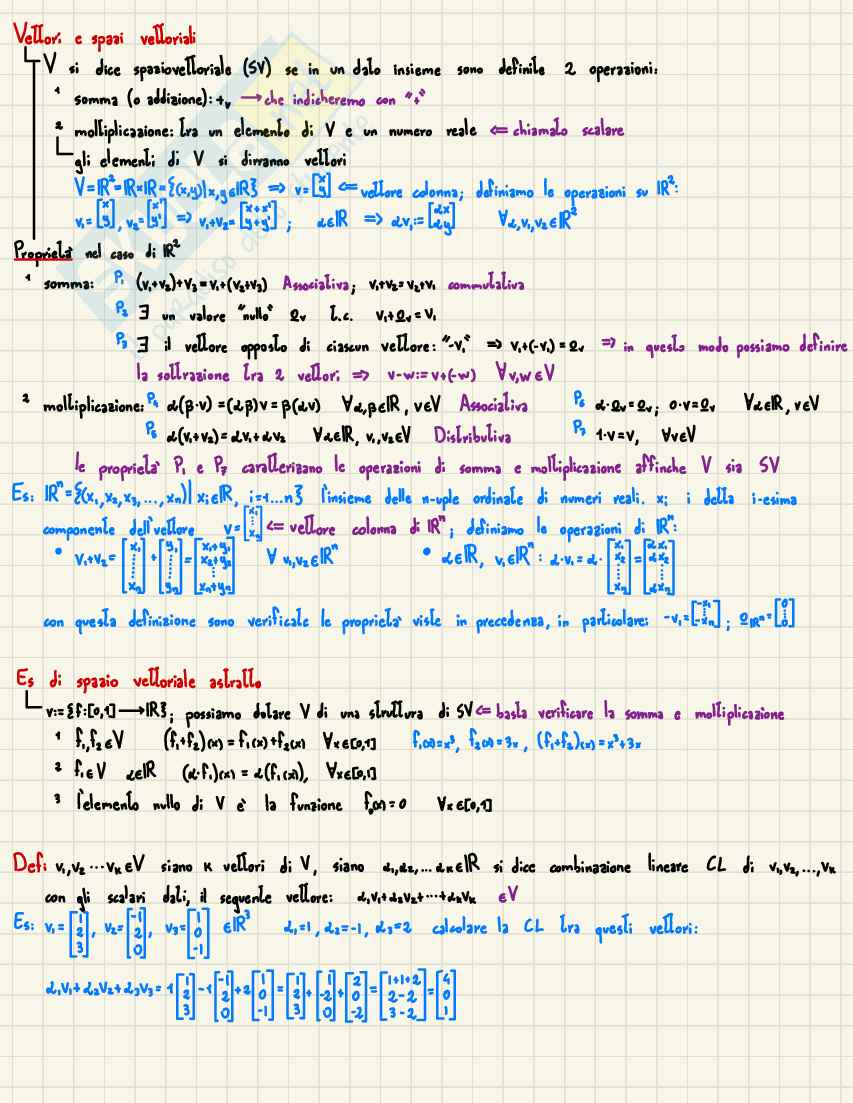 Vettori e spazi vettoriali
V si dice spaziovettoriale (SV) se in un dato insieme sono definite 2 operazioni:
1 somma (o addizione): +ᵥ ⟶ che indicheremo con "+"
2 moltiplicazione: tra un elemento di V e un numero reale ⇐ chiamato scalare
gli elementi di V si diranno vettori
V=ℝ²=ℝ×ℝ={(x,y)|x,y∈ℝ} ⇒ v=[x y] ⇐ vettore colonna; definiamo le operazioni su ℝ²:
v₁=[x y], v₂=[x' y'] ⇒ v₁+v₂=[x+x' y+y']; α∈ℝ ⇒ αv₁:=[αx αy] ∀α,v₁,v₂∈ℝ²
Proprietà nel caso di ℝ²
1 somma: P₁ (v₁+v₂)+v₃=v₁+(v₂+v₃) Associativa; v₁+v₂=v₂+v₁ commutativa
P₂ ∃ un valore "nullo" 0ᵥ t.c. v₁+0ᵥ=v₁
P₃ ∃ il vettore opposto di ciascun vettore: "-v₁" ⇒ v₁+(-v₁)=0ᵥ ⇒ in questo modo possiamo definire
la sottrazione tra 2 vettori ⇒ v-w:=v+(-w) ∀v,w∈V
2 moltiplicazione: P₄ α(β·v)=(αβ)v=β(αv) ∀α,β∈ℝ, v∈V Associativa P₆ α·0ᵥ=0ᵥ; 0·v=0ᵥ ∀α∈ℝ, v∈V
P₅ α(v₁+v₂)=αv₁+αv₂ ∀α∈ℝ, v₁,v₂∈V Distributiva P₇ 1·v=v, ∀v∈V
le proprietà P₁ e P₇ caratterizano le operazioni di somma e moltiplicazione affinche V sia SV
Es: ℝⁿ={(x₁,x₂,x₃,...,xₙ)| xᵢ∈ℝ, i=1...n} l'insieme delle n-uple ordinate di numeri reali. xᵢ i detta i-esima
componente dell'vettore v=[x₁ ⋮ xₙ] ⇐ vettore colonna di ℝⁿ; definiamo le operazioni di ℝⁿ:
• v₁+v₂=[x₁ ⋮ xₙ]+[y₁ ⋮ yₙ]=[x₁+y₁ x₂+y₂ ⋮ xₙ+yₙ] ∀ v₁,v₂∈ℝⁿ • α∈ℝ, v₁∈ℝⁿ: α·v₁=α·[x₁ x₂ ⋮ xₙ]=[αx₁ αx₂ ⋮ αxₙ]
con questa definizione sono verificate le proprietà viste in precedenza, in particolare: -v₁=[-x₁ ⋮ -xₙ]; 0ℝⁿ=[0 ⋮ 0]
Es di spazio vettoriale astratto
v:={f:[0,1]⟶ℝ}; possiamo dotare V di una struttura di SV ⇐ basta verificare la somma e moltiplicazione
1 f₁,f₂∈V (f₁+f₂)(x)=f₁(x)+f₂(x) ∀x∈[0,1] f₁(x)=x³, f₂(x)=3x, (f₁+f₂)(x)=x³+3x
2 f₁∈V α∈ℝ (α·f₁)(x)=α(f₁(x)), ∀x∈[0,1]
3 l'elemento nullo di V è la funzione f₀(x)=0 ∀x∈[0,1]
Def: v₁,v₂ ⋯ vₖ∈V siano k vettori di V, siano α₁,α₂,...αₖ∈ℝ si dice combinazione lineare CL di v₁,v₂,...,vₖ
con gli scalari dati, il seguente vettore: α₁v₁+α₂v₂+⋯+αₖvₖ ∈V
Es: v₁=[1 2 3], v₂=[-1 2 0], v₃=[1 0 -1] ∈ℝ³ α₁=1, α₂=-1, α₃=2 calcolare la CL tra questi vettori:
α₁v₁+α₂v₂+α₃v₃=1[1 2 3]-1[-1 2 0]+2[1 0 -1]=[1 2 3]+[1 -2 0]+[2 0 -2]=[1+1+2 2-2 3-2]=[4 0 1]